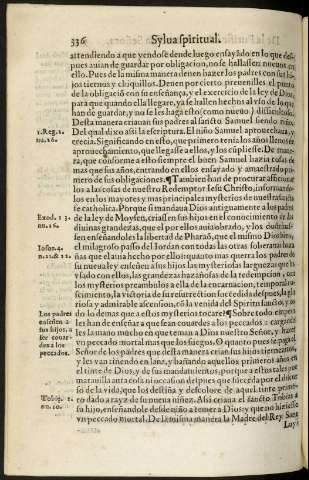 336 Sylua spiritual.
attendiendo a que yendose dende luego ensayado en lo que
pues auian de guardar por obligacion, no se hallassen nueuos en
ello. Pues de la misma manera deuen hazer los padres con sus hi-
jos tiernos y chiquillos. Deuen por cierto preuenilles el punto
de la obligacio con su enseñança, y el exercicio de la ley de Dios,
para que quando ella llegare, ya se hallen hechos al vso de lo que
han de guardar, y no se les haga esto (como nueuo) dificultoso.
Desta manera criauan sus padres al sancto Samuel siendo niño.
1. Reg. 2.
nu. 26.
Del qual dixo assi la escriptura. El niño Samuel aprouechaua, y
crecia. Significando en esto, que primero tenia los años llenos de
aprouechamiento, que llegasse a ellos, y los cūpliesse. De mane-
ra, que conforme a esto siempre el buen Samuel hazia cosas de
mas que sus años, entrando en ellos ensayado y amaestrado pri-
mero de sus obligaciones. ¶ Tambien han de procurar aficionar
los a las cosas de nuestro Redemptor Iesu Christo, informando-
los en los mayores y mas principales mysterios de nuestra sancta
fe catholica. Porque si mandaua Dios antiguamente a los padres
Exod. 13.
nu. 16.
de la ley de Moysen, criassen sus hijos en el conocimiento de las
diuinas grandezas, que el por ellos auia obrado, y los
sen enseñandoles la libertad de Pharaō, que el mismo Dios hizo,
Iosue. 4.
n. 21. & 22.
el milagroso passo del Iordan con todas las otras soberanas haza
ñas que el auia hecho por ellos: quanto mas querra a los padres de
su nueua ley y enseñen a sus hijos las mysteriosas larguezas que ha
vsado con ellos, las grandezas hazañosas de la redempcion, con
los mysterios preambulos a ella de la encarnacion, temporal na-
scimiento, la victoria de su resurrection sucedida despues, la glo
riosa y admirable ascension, cō la venida del Spiritu sancto, y to
Los padres
enseñen a
sus hijos, a
ser couar-
dos a los
peccados.
do lo demas que a estos mysterios tocare. ¶ Sobre todo siempre
les han de enseñar a que sean couardes a los peccados: cargando
les la mano mucho en que teman a Dios nuestro Señor, y hazer
vn peccado mortal mas que los fuegos. O quanto pues se paga el
Señor de los padres que desta manera crian sus hijos tiernezitos,
y les van tiñendo en lana, y bañando aquellos primeros años en
el tinte de Dios, y de sus mandamientos, porque a estos tales por
marauilla aura cosa ni ocasion despues que suceda por el discur
so de la vida, que los destiña y descolore de aquel tinte prime-
Tobię. 1.
nu. 10.
ro dado a rayz de su nueua niñez. Assi criaua el sancto Tobias a
su hijo, enseñandole desde niño a temer a Dios: y que no hiziesse
vn peccado mortal. De la misma manera la Madre del Rey. San
Luys